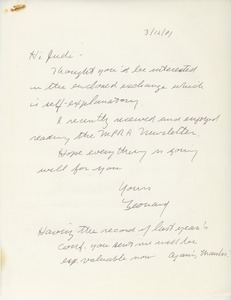 3/12/81
Hi Jude -
Thought you'd be interested
in the enclosed exchange which
is self-explanatory
I recently received and enjoyed
reading the MPRA Newsletter.
Hope everything is going
well for you
Yours
Leonard
Having the record of last year's
conf. you sent me will be
esp. valuable now Again, thanks.